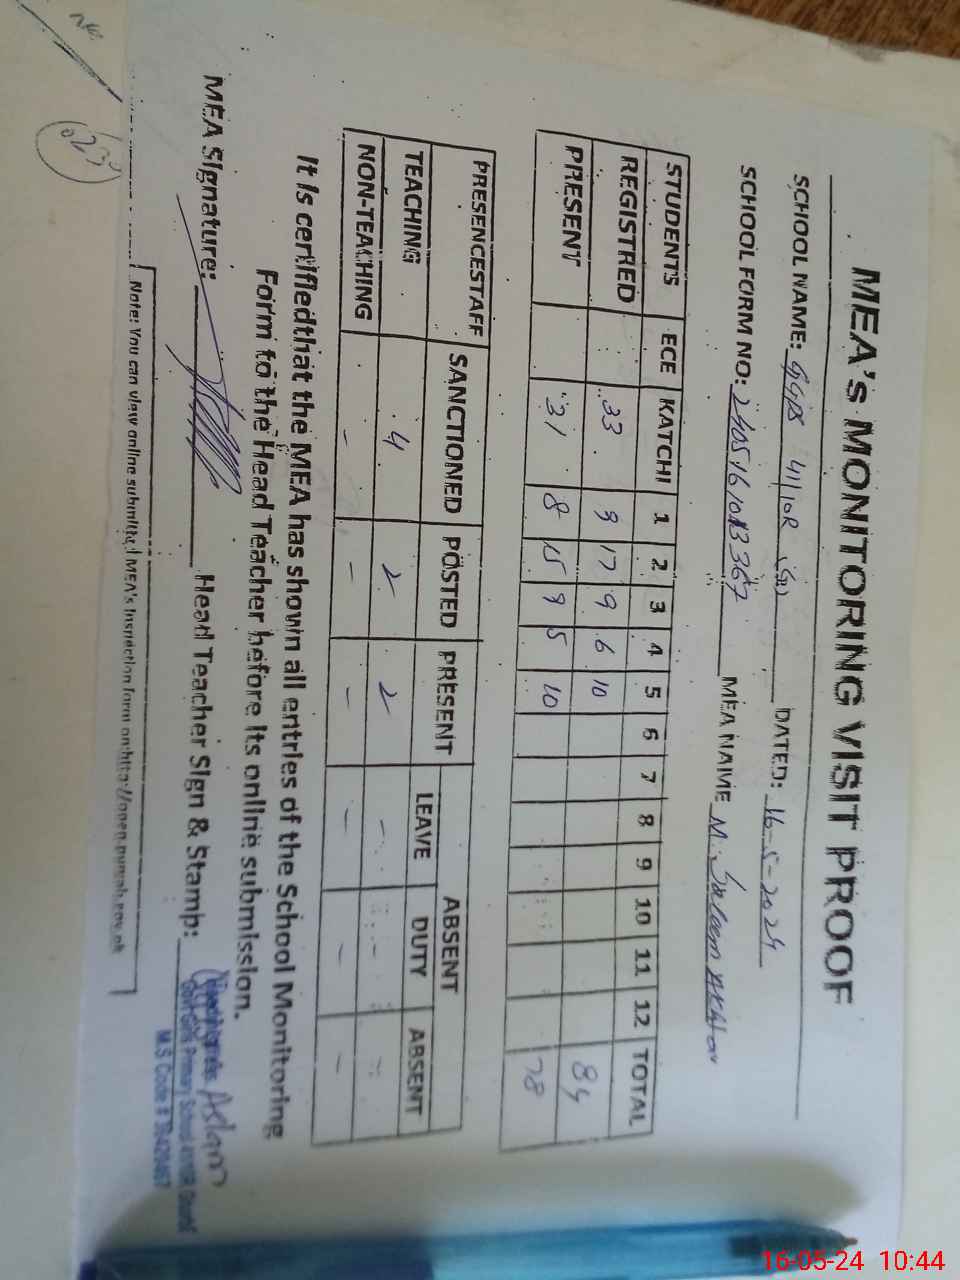 MEA's MONITORING VISIT PROOF
SCHOOL NAME: GGPS 41/10R (G) DATED: 16-5-2024
SCHOOL FORM NO: MEA NAME M. Saleem Akhtar
STUDENT'S ECE KATCHI 1 2 3 4 5 6 7 8 9 10 11 12 TOTAL
REGISTRED 33 9 17 9 6 10 84
PRESENT 31 8 15 9 5 10 78
PRESENCESTAFF SANCTIONED POSTED PRESENT ABSENT
LEAVE DUTY ABSENT
TEACHING 4 2 2 - - -
NON-TEACHING - - - - - -
It is certifiedthat the MEA has shown all entries of the School Monitoring
Form to the Head Teacher before its online submission.
MEA Signature: Head Teacher Sign & Stamp:
Aslam
Govt Girls Primary School
M.S Code #
Note: You can view online submitted MEA's Inspection form on:http://open.punjab.gov.pk
16-05-24 10:44